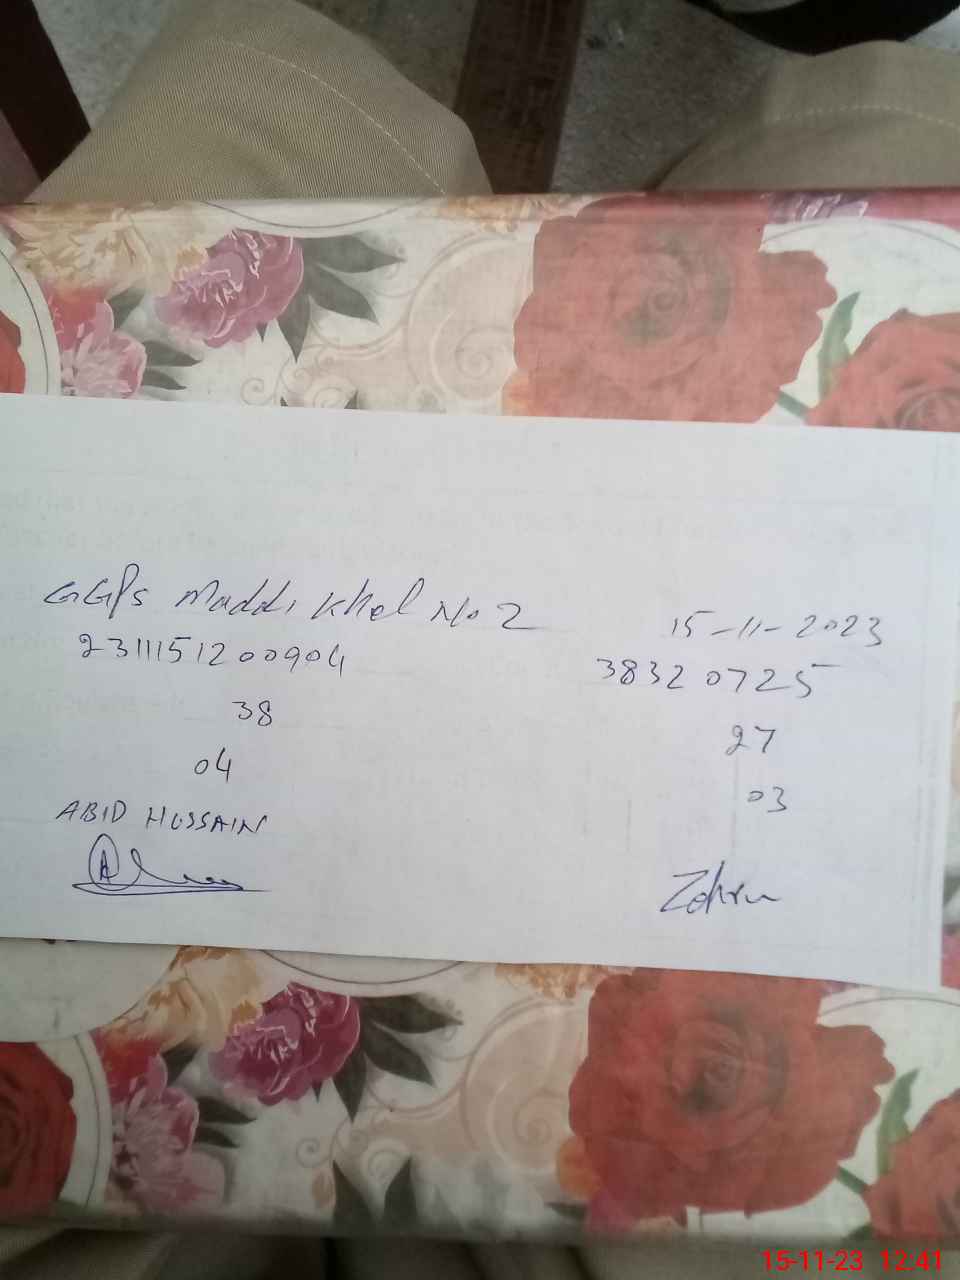 GGPS Maddi Khel No 2
15-11-2023
2311151200904
38320725
38
27
04
03
ABID HUSSAIN
Zahra
15-11-23 12:41